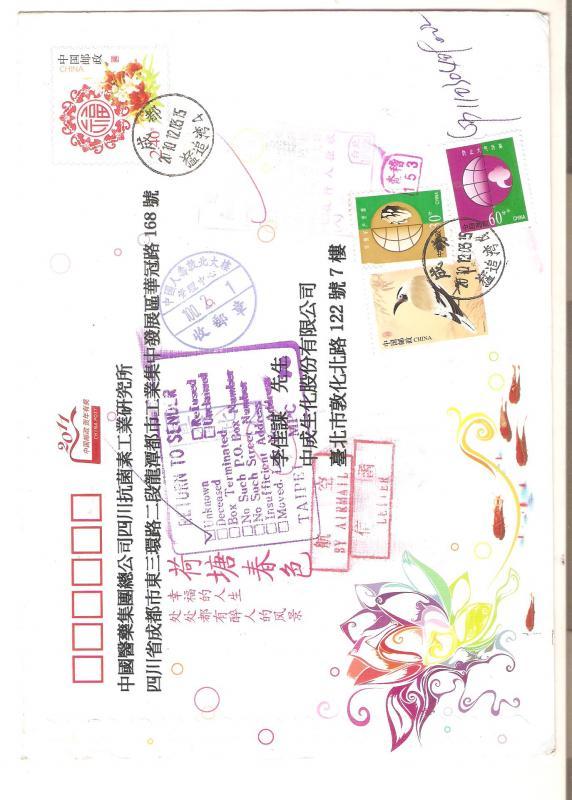 中國醫藥集團總公司四川抗菌素工業研究所
四川省成都市東三環路二段龍潭都市工業集中發展區華冠路 168 號
李佳謀 先生
中成生化股份有限公司
臺北市敦化北路 122 號 7 樓
2011
中国邮政 贺年有奖
CHINA POST
荷塘春色
幸福的人生
处处都有醉人的风景
RETURN TO SENDER
Refused
Unclaimed
Unknown
Deceased
Box Terminated
No Such P.O. Box Number
No Such Street Number
Insufficient Address
Moved.
TAIPEI
航空
BY AIRMAIL
信函
LETTER
收郵章
中国邮政
CHINA
福
2.40
成都
中国邮政
CHINA
60分
中国邮政
CHINA
中国邮政 CHINA
成都
153